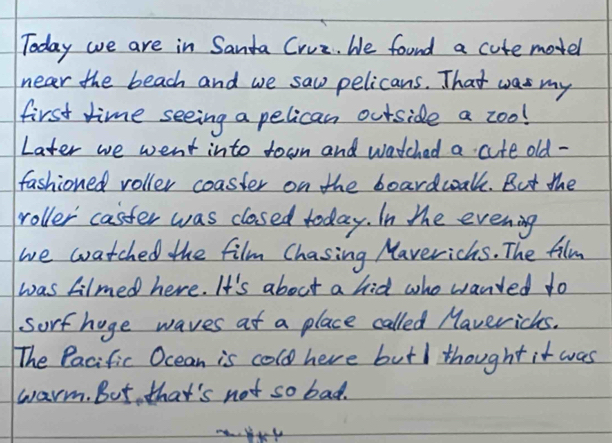 Today we are in Santa Cruz. We found a cute motel
near the beach and we saw pelicans. That was my
first time seeing a pelican outside a zoo!
Later we went into town and watched a cute old-
fashioned roller coaster on the boardwalk. But the
roller caster was closed today. In the evening
we watched the film Chasing Mavericks. The film
was filmed here. It's about a kid who wanted to
surf huge waves at a place called Mavericks.
The Pacific Ocean is cold here but I thought it was
warm. But, that's not so bad.